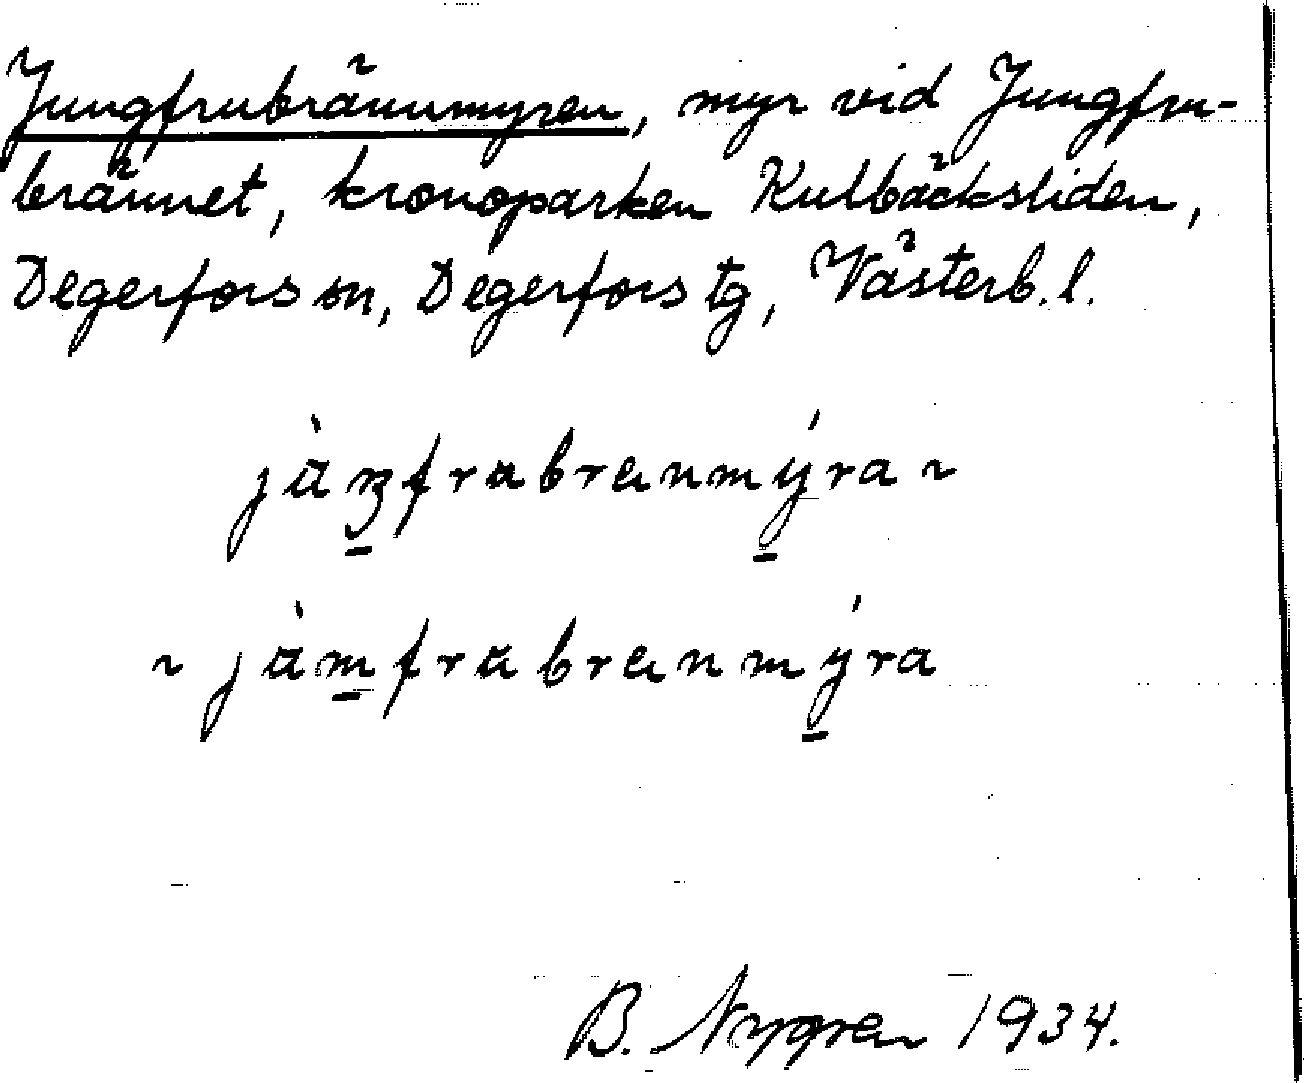 Jungfrubrännmyren, myr vid Jungfru-
brännet, kronoparken Kulbäcksliden,
Degerfors sn, Degerfors tg, Västerb. l.
jùŋfrubrenmýra ~
~ jùmfrubrenmýra
B. Nygren 1934.